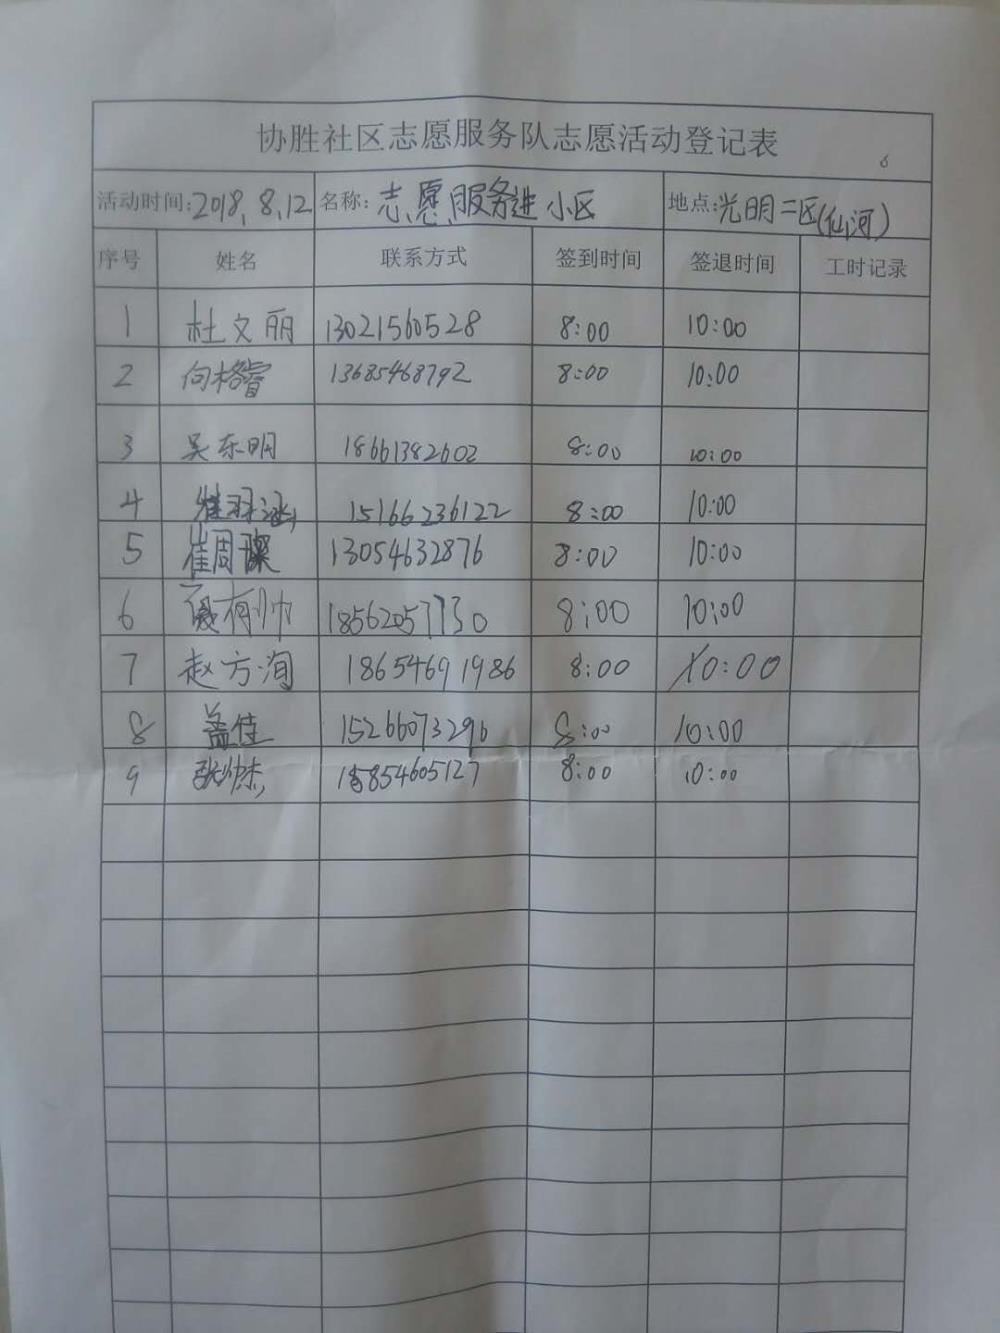 协胜社区志愿服务队志愿活动登记表
6
活动时间:2018.8.12 名称:志愿服务进小区 地点:光明二区(仙河)
序号 姓名 联系方式 签到时间 签退时间 工时记录
1 杜文丽 13021560528 8:00 10:00
2 向格睿 13685468792 8:00 10:00
3 吴东明 18661382602 8:00 10:00
4 15166236122 8:00 10:00
5 崔周 13054632876 8:00 10:00
6 有帅 18562057730 8:00 10:00
7 赵方洵 18654691986 8:00 10:00
8 盖佳 15266073296 8:00 10:00
9 张帅杰 15854605127 8:00 10:00